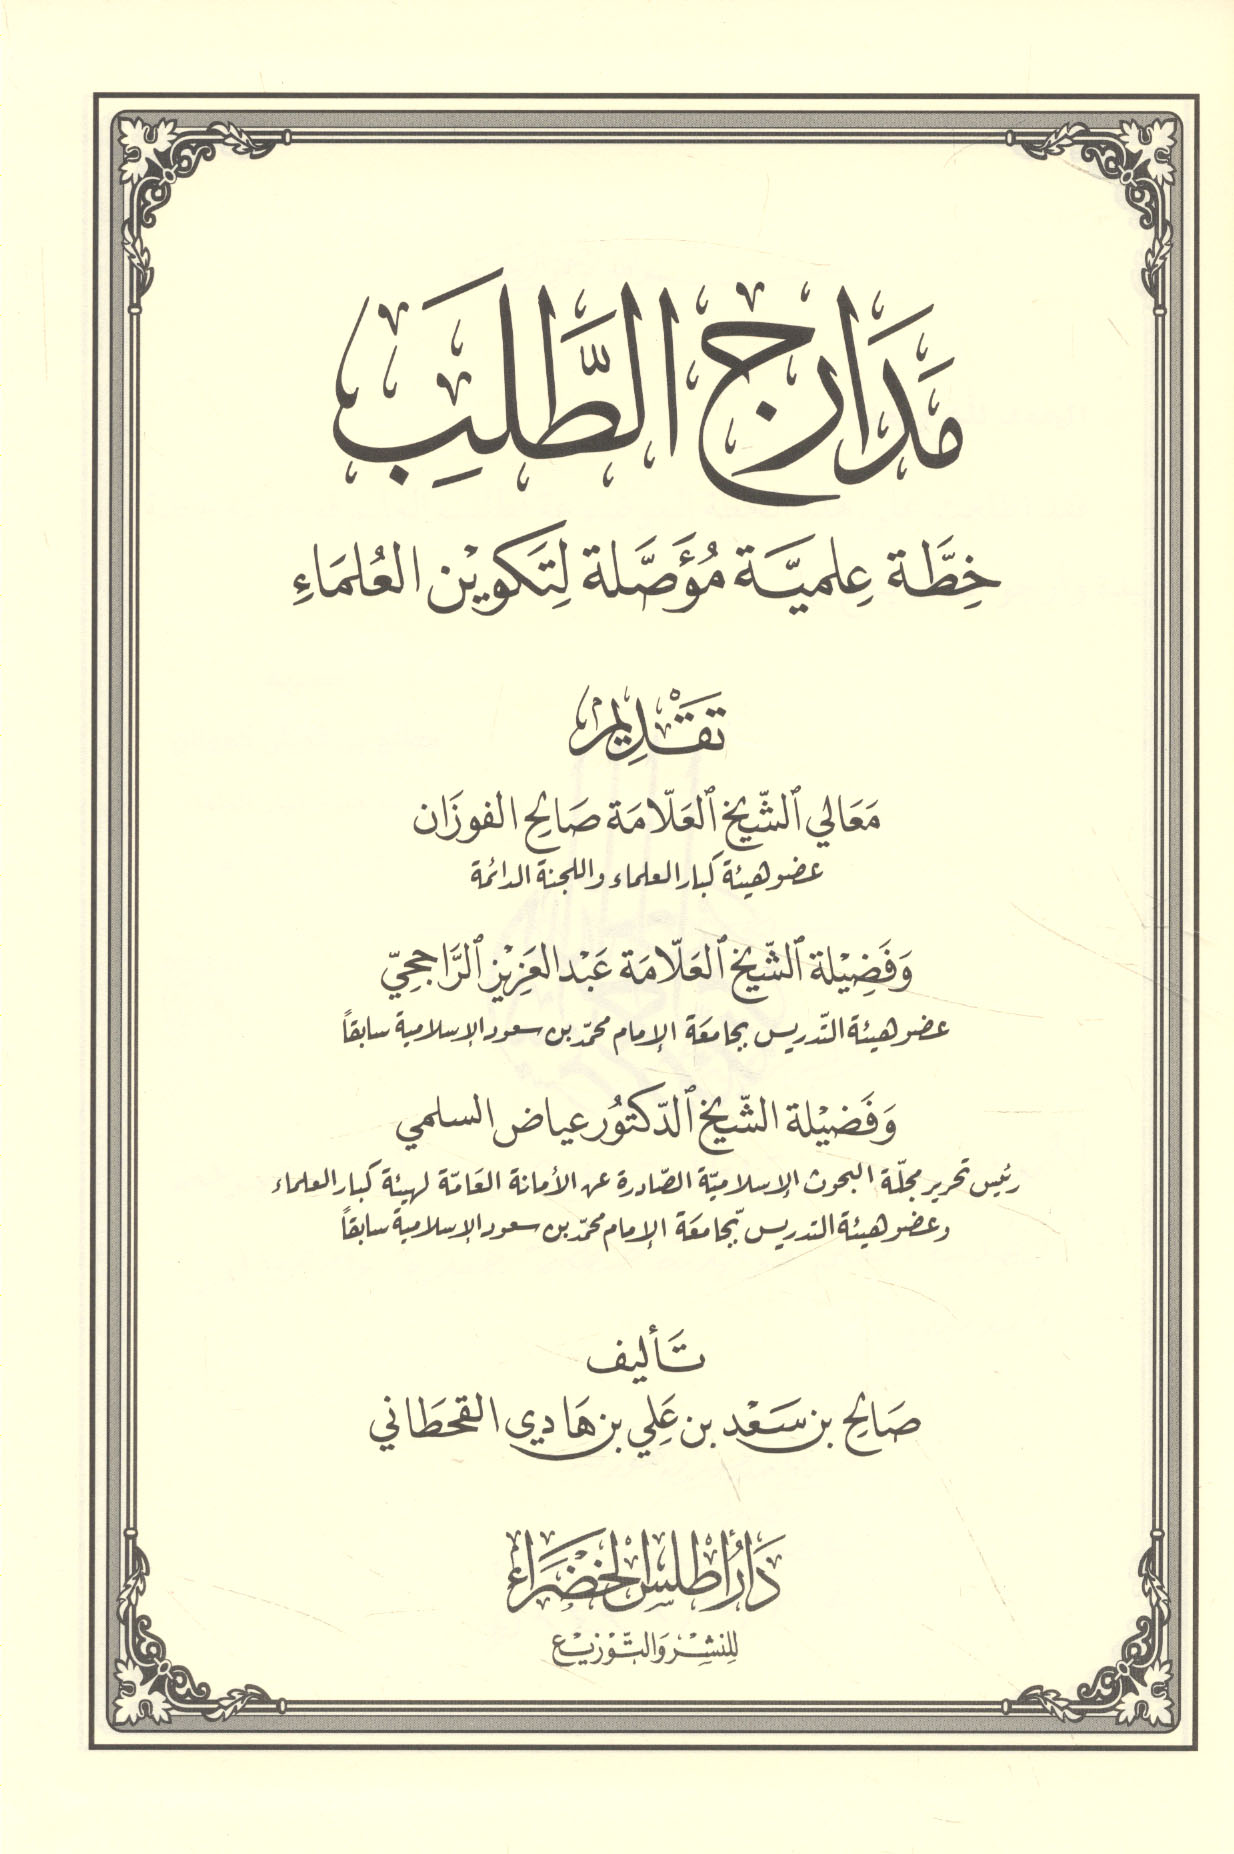 مَدَارِجُ الطَّلَبِ
خِطَّة عِلميَّة مُؤَصَّلة لِتَكوِيْن العُلمَاءِ
تَقْدِيم
مَعَالي ٱلشَّيخ ٱلعَلّامَة صَالِح الفوزَان
عضو هيئة كبار العلماء واللجنة الدائمة
وَفَضِيْلة ٱلشَّيخ ٱلعَلّامَة عَبْد العَزِيْز ٱلرَّاجحِيّ
عضو هيئة التّدريس بجامعَة الإمام محمّد بن سعود الإسلامية سابقاً
وَفَضِيْلة الشَّيخ ٱلدّكتُور عياض السلمي
رئيس تحرير مجلّة البحوث الإسلاميّة الصّادرة عن الأمانة العَامّة لهيئة كبار العلماء
وعضو هيئة التدريس بجامعَة الإمام محمّد بن سعود الإسلامية سابقاً
تَأليف
صَالِح بن سَعْد بن عَلِي بن هَادِي القحطَاني
دَارُ أطْلس الخَضْرَاء
لِلنشْر وَالتَّوْزيْع